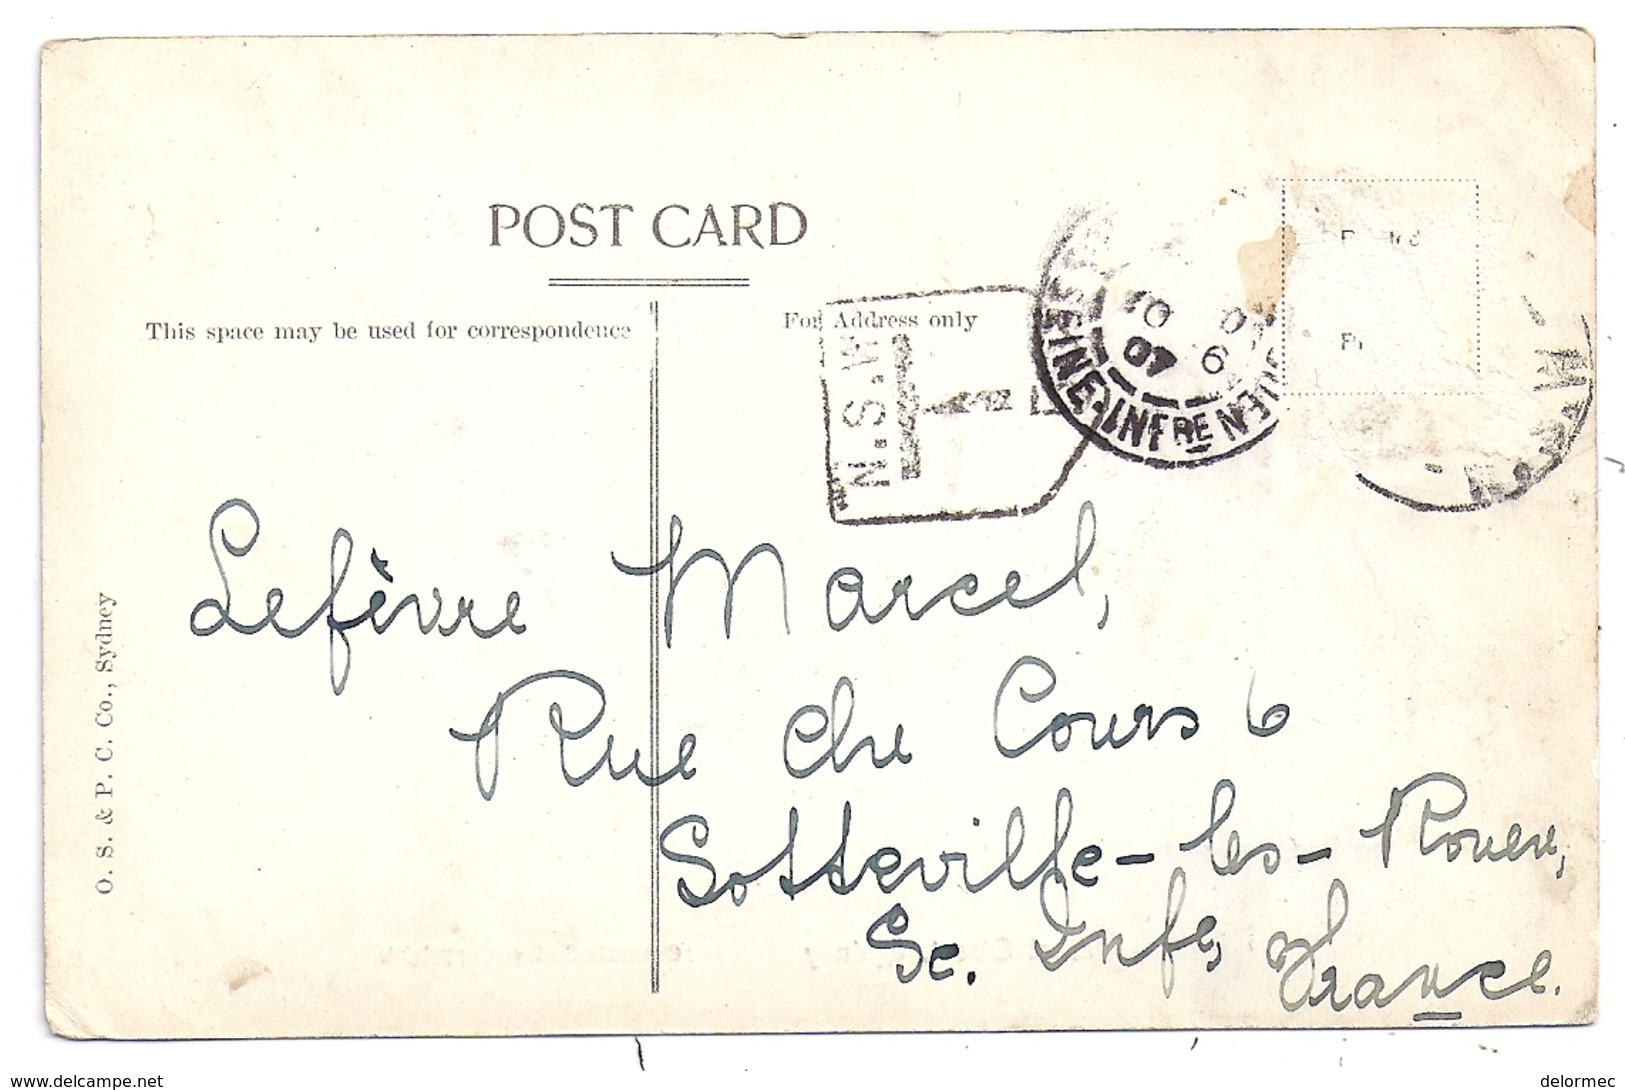 POST CARD
This space may be used for correspondence
For Address only
N.S.W
T
10
6
07
SEINE-INFRE
Lefèvre Marcel,
Rue Che Cours 6
Sotteville-les-Rouen,
Se. Infe, France.
O. S. & P. C. Co., Sydney
www.delcampe.net
delormec